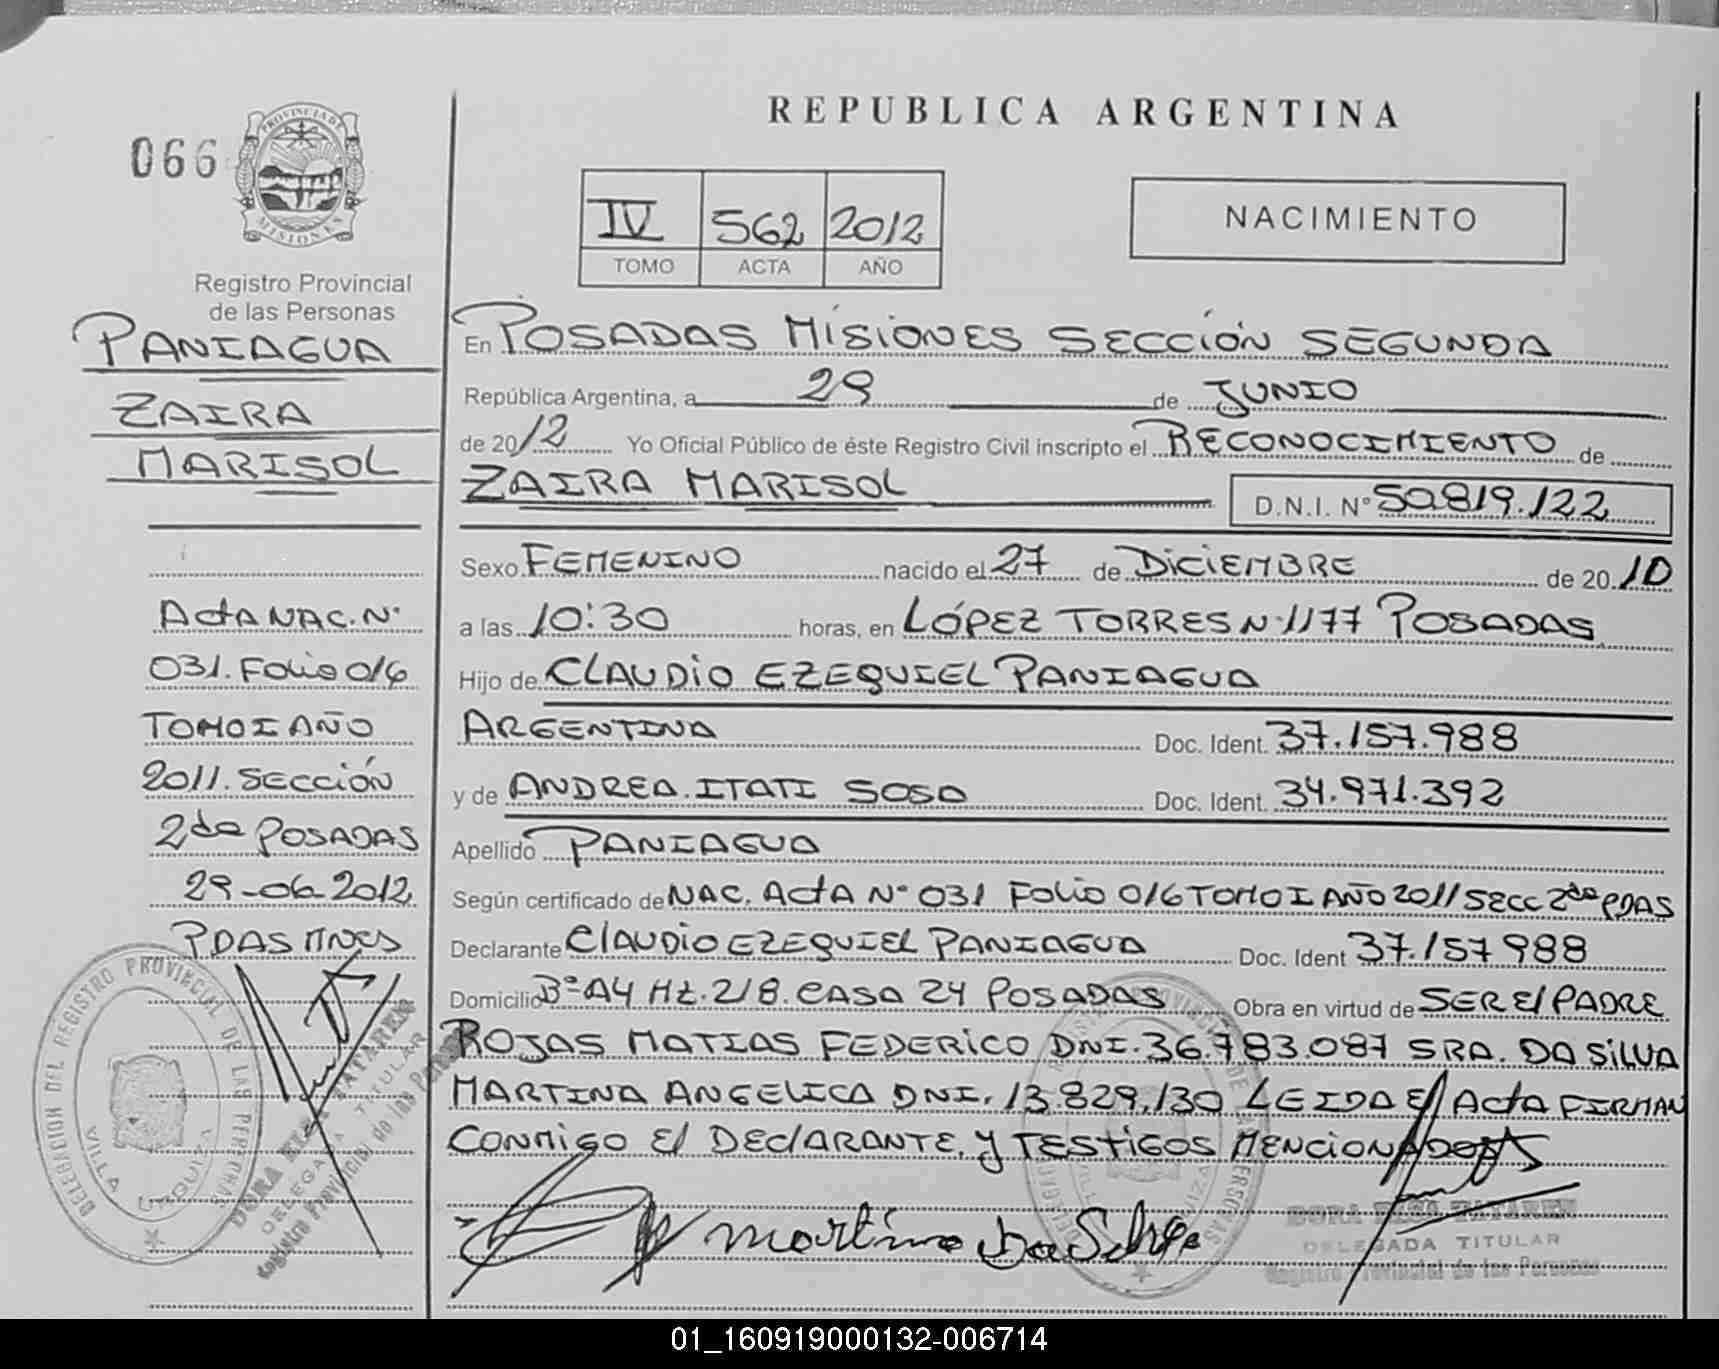 REPUBLICA ARGENTINA
066
PROVINCIA DE
MISIONES
IV 562 2012
TOMO ACTA AÑO
NACIMIENTO
Registro Provincial
de las Personas
PANIAGUA
ZAIRA
MARISOL
Acta NAC. N°
031. Folio 016
TOMO I AÑO
2011. SECCIÓN
2da POSADAS
29-06-2012
PDAS MNES
En POSADAS MISIONES SECCIÓN SEGUNDA
República Argentina, a 29 de JUNIO
de 2012 Yo Oficial Público de éste Registro Civil inscripto el RECONOCIMIENTO de
ZAIRA MARISOL D.N.I. N° 50.819.122
Sexo FEMENINO nacido el 27 de DICIEMBRE de 2010
a las 10:30 horas, en LÓPEZ TORRES N° 1177 POSADAS
Hijo de CLAUDIO EZEQUIEL PANIAGUA
ARGENTINA Doc. Ident. 37.157.988
y de ANDREA ITATI SOSA Doc. Ident. 34.971.392
Apellido PANIAGUA
Según certificado de NAC. ActA N° 031 Folio 016 TOMO I AÑO 2011 SECC 2da PDAS
Declarante CLAUDIO EZEQUIEL PANIAGUA Doc. Ident 37.157.988
Domicilio B° A4 Hz. 218. CASA 24 POSADAS Obra en virtud de SER El PADRE
ROJAS MATIAS FEDERICO DNI. 36.783.087 SRA. DA SILVA
MARTINA ANGELICA DNI. 13.829.130 LEIDA El ActA FIRMAN
CONMIGO El DEClARANTE, y TESTIGOS MENCIONADOS
Martina Da Silva
DELEGACION DEL REGISTRO PROVINCIAL DE LAS PERSONAS
VILLA URQUIZA
DORA ELSA TATAREN
DELEGADA TITULAR
Registro Provincial de las Personas
DORA ELSA TATAREN
DELEGADA TITULAR
Registro Provincial de las Personas
01_160919000132-006714